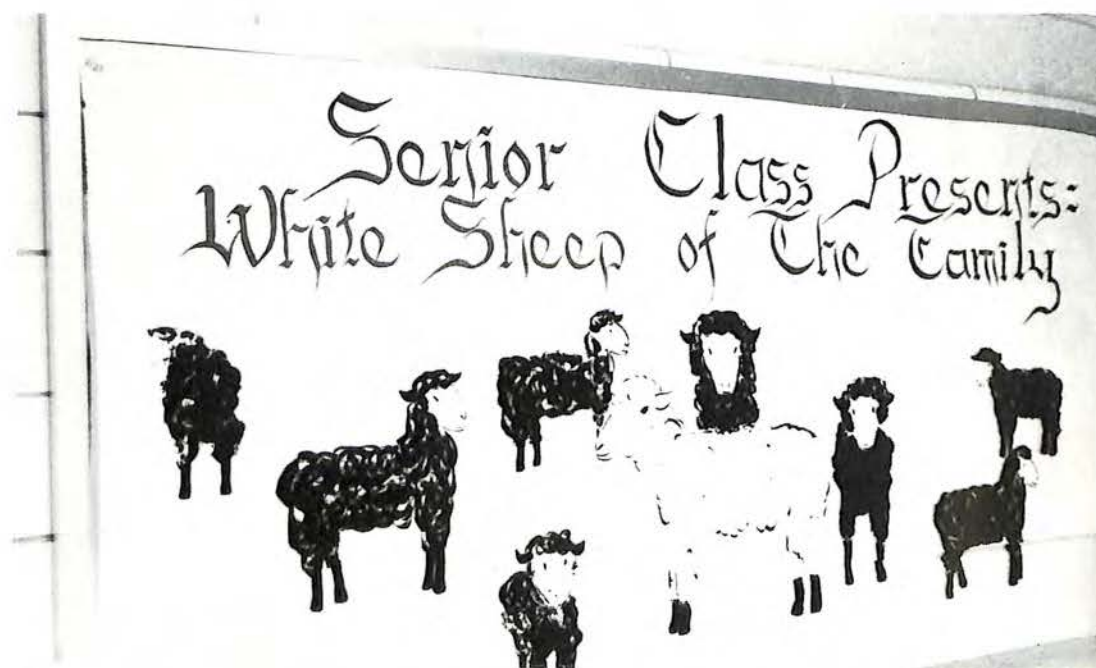 Senior Class Presents:
White Sheep of The Family